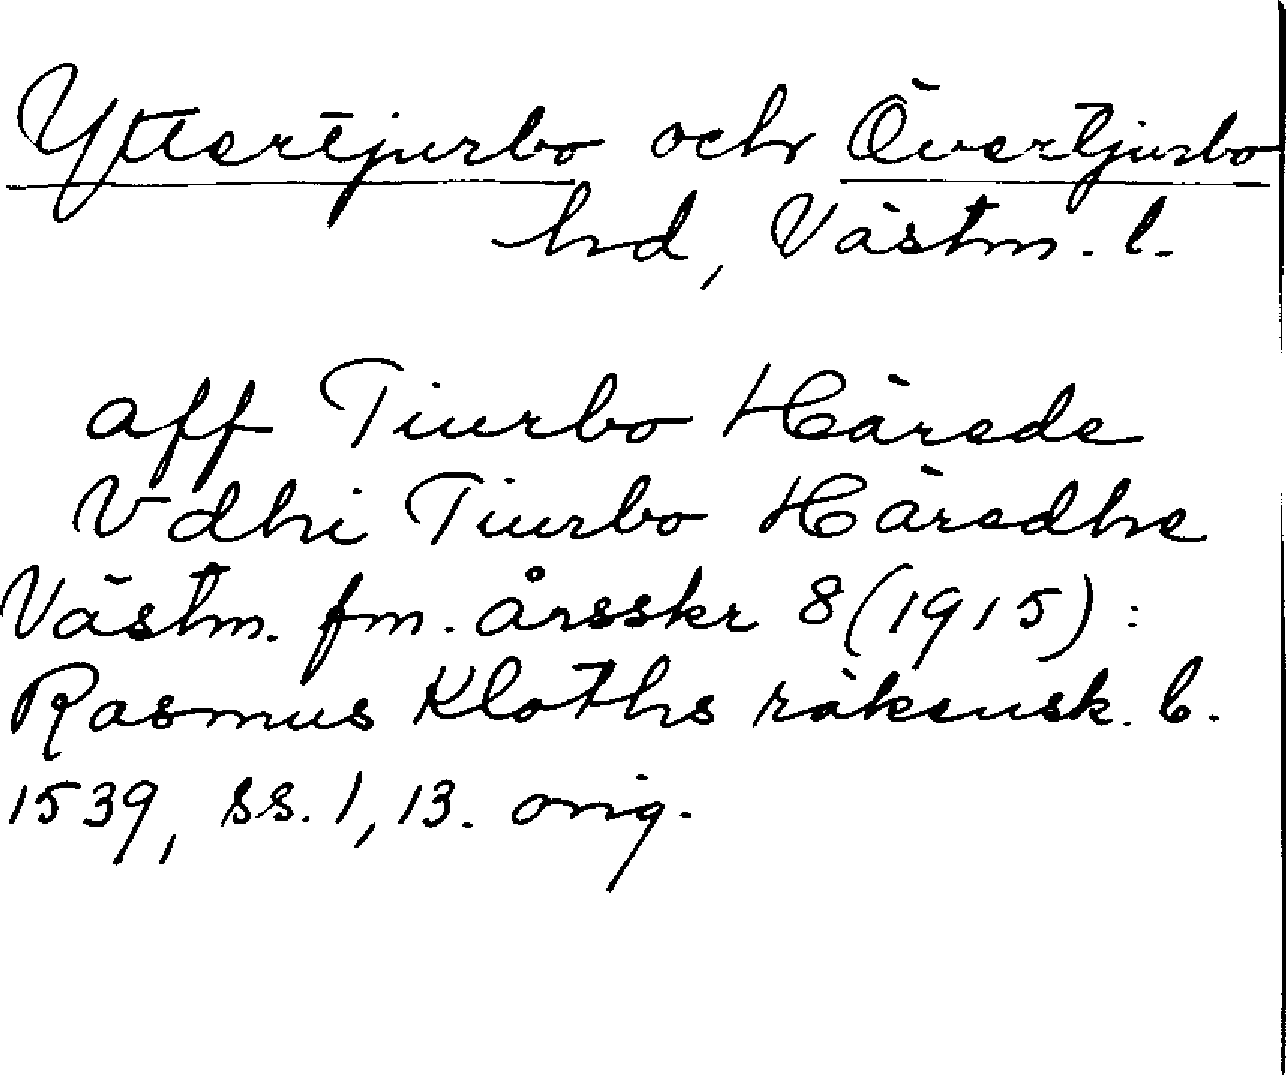 Yttertjurbo och Övertjurbo
hrd, Västm. l.
aff Tiurbo Härede
Vdhi Tiurbo Häredhe
Västm. fm. årsskr 8 (1915):
Rasmus Kloths räkensk. b.
1539, ss. 1, 13. orig.